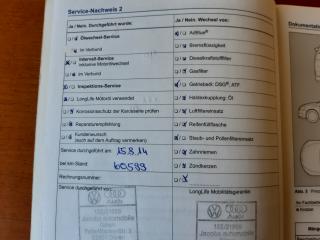 Service-Nachweis 2
Ja / Nein. Durchgeführt wurde:
Ja / Nein. Wechsel von:
Ölwechsel-Service
AdBlue®
im Verbund
Bremsflüssigkeit
Intervall-Service
inklusive Motorölwechsel
Dieselkraftstofffilter
im Verbund
Gasfilter
Inspektions-Service
Getriebeöl: DSG®, ATF
LongLife Motoröl verwendet
Haldexkupplung: Öl
Korrosionsschutz der Karosserie prüfen
Luftfiltereinsatz
Reparaturempfehlung
Reifenfüllflasche
Kundenwunsch
(auch auf dem Auftrag vermerken)
Staub- und Pollenfiltereinsatz
Service durchgeführt am: 15.8.14
Zahnriemen
bei km-Stand: 60599
Zündkerzen
Rechnungsnummer:
Service durchgeführt von:
LongLife Mobilitätsgarantie
Audi
Audi
Jacobs automobile
Jacobs automobile
Dokumentation